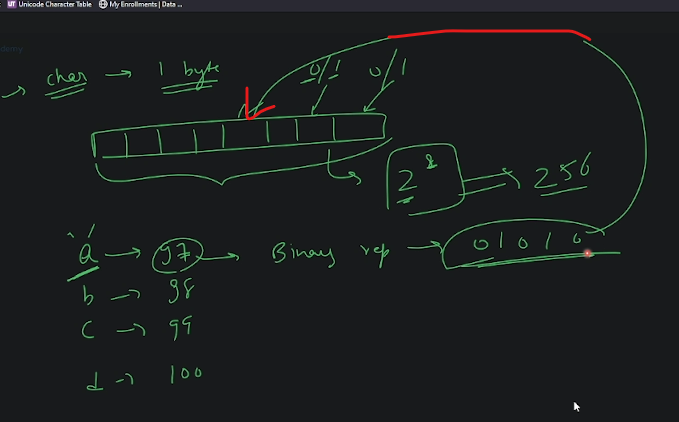 Unicode Character Table My Enrollments | Data ...
char → 1 byte 0/1 0/1
2⁸ → 256
'a' → 97 → Binary rep → 01010
b → 98
c → 99
d → 100